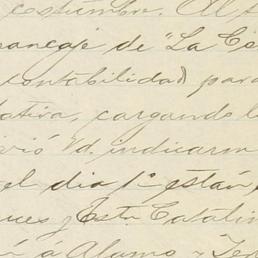 costumbre. Al s
pancaje de "La Es
contabilidad) para
lativa, cargando l
rió Vd. indicarm
el dia 1º están
ues y Estn. Catalin
á Alamo - Ten